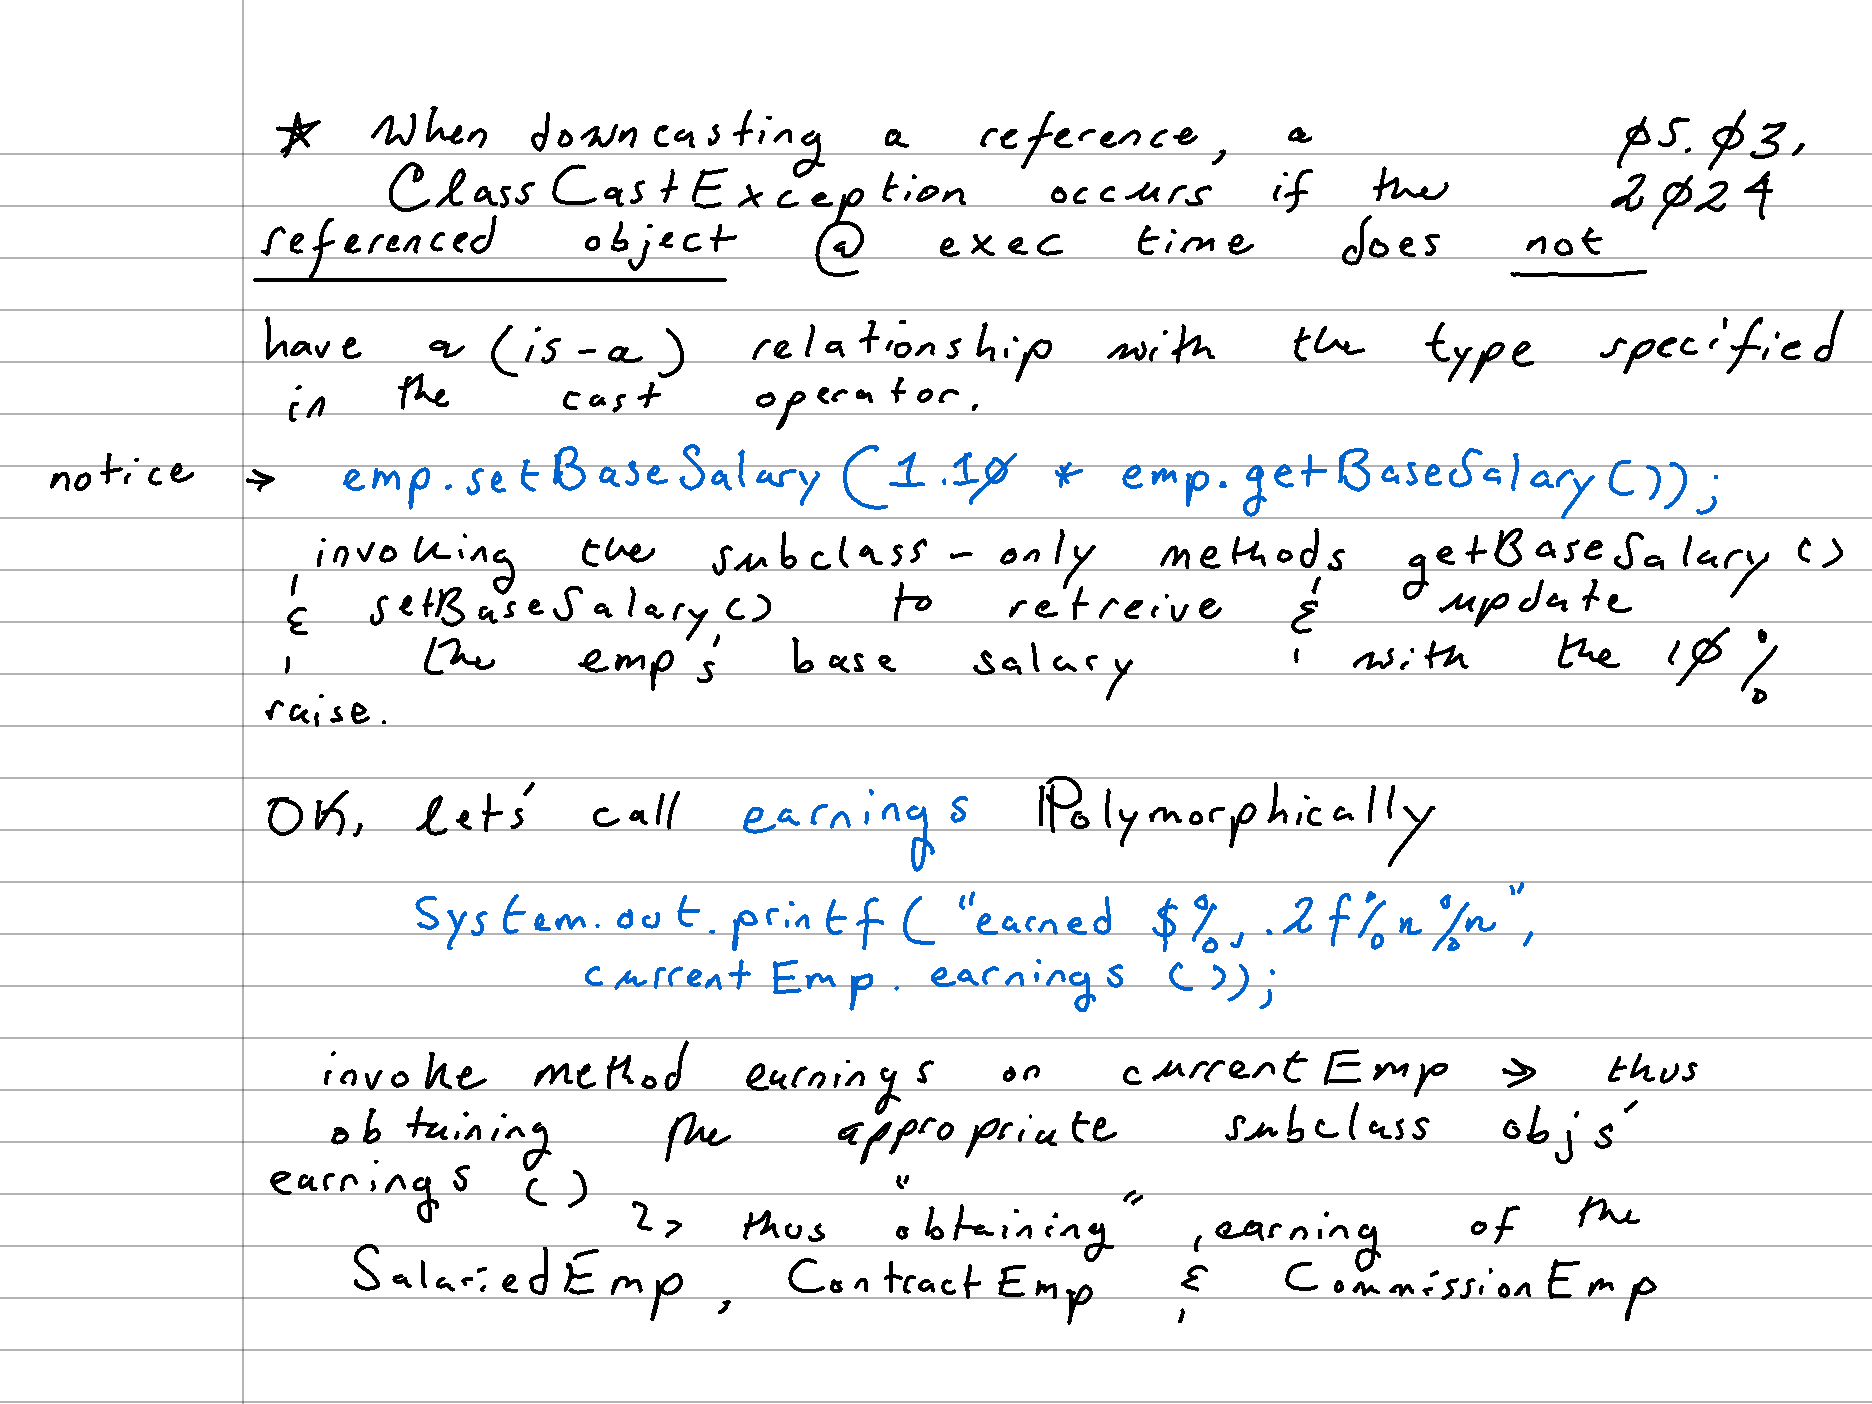 * When downcasting a reference, a ø5.ø3,
ClassCastException occurs if the 2ø24
referenced object @ exec time does not
have a (is-a) relationship with the type specified
in the cast operator.
notice → emp.setBaseSalary(1.1ø * emp.getBaseSalary());
invoking the subclass-only methods getBaseSalary()
& setBaseSalary() to retreive & update
the emp's base salary with the 1ø%
raise.
OK, let's call earnings Polymorphically
System.out.printf("earned $%,.2f%n%n",
currentEmp.earnings());
invoke method earnings on currentEmp → thus
obtaining the appropriate subclass objs'
earnings()
↳ thus "obtaining" earning of the
SalariedEmp, ContractEmp & CommissionEmp